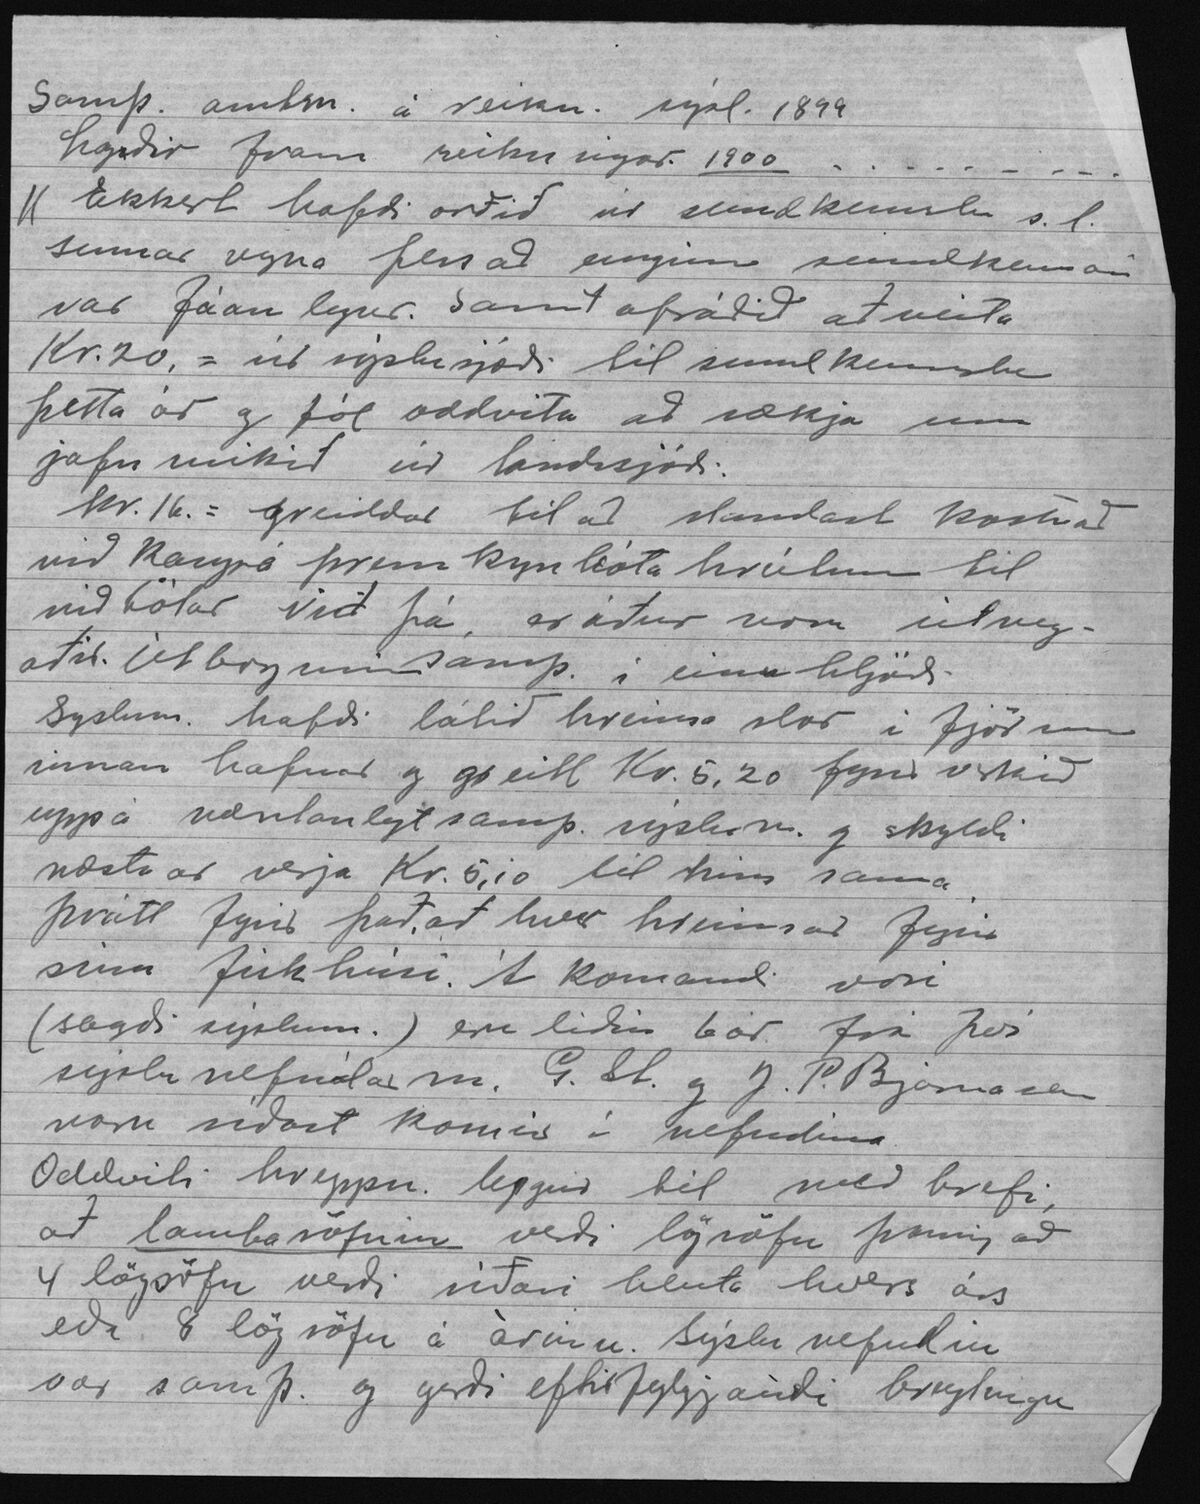 Samþ. amtsn. á reikn. sýsl. 1899
lagðir fram reikningar 1900 - . - - - - - -
Ekkert hafði orðið úr sundkenslu s.l.
sumar vegna þess að enginn sundkennari
var fáanlegur. Samt afráðið að veita
Kr. 20,= úr sýslusjóði til sundkenslu
þetta ár og fól oddvita að sækja um
jafn mikið úr landssjóði.
Kr. 16.= greiddar til að standast kostnað
við kaup á þrem kynbóta hrútum til
viðbótar við þá, er áður voru útveg-
aðir. Útborgunin samþ. í einu hljóði.
Syslum. hafði látið hreinsa slor í fjörunni
innan hafnar og greitt Kr. 5,20 fyrir verkið
uppá væntanlegt samþ. sýslun. og skyldi
næsta ár verja Kr. 5,10 til hins sama
þrátt fyrir það, að hver hreinsar fyrir
sínu fiskhúsi. Á komandi vori
(sagði sýslum.) eru liðin 6 ár frá því
sýslunefndar m. G. St. og J. P. Bjarnasen
voru síðast komnir í nefndina
Oddviti hreppsn. leggur til með brefi,
að lambasöfnin verði lögsöfn þannig að
4 lögsöfn verði síðari hluta hvers árs
eða 8 lögsöfn á árinu. Sýslunefndin
var samþ. og gerði eftirfylgjandi breytingu